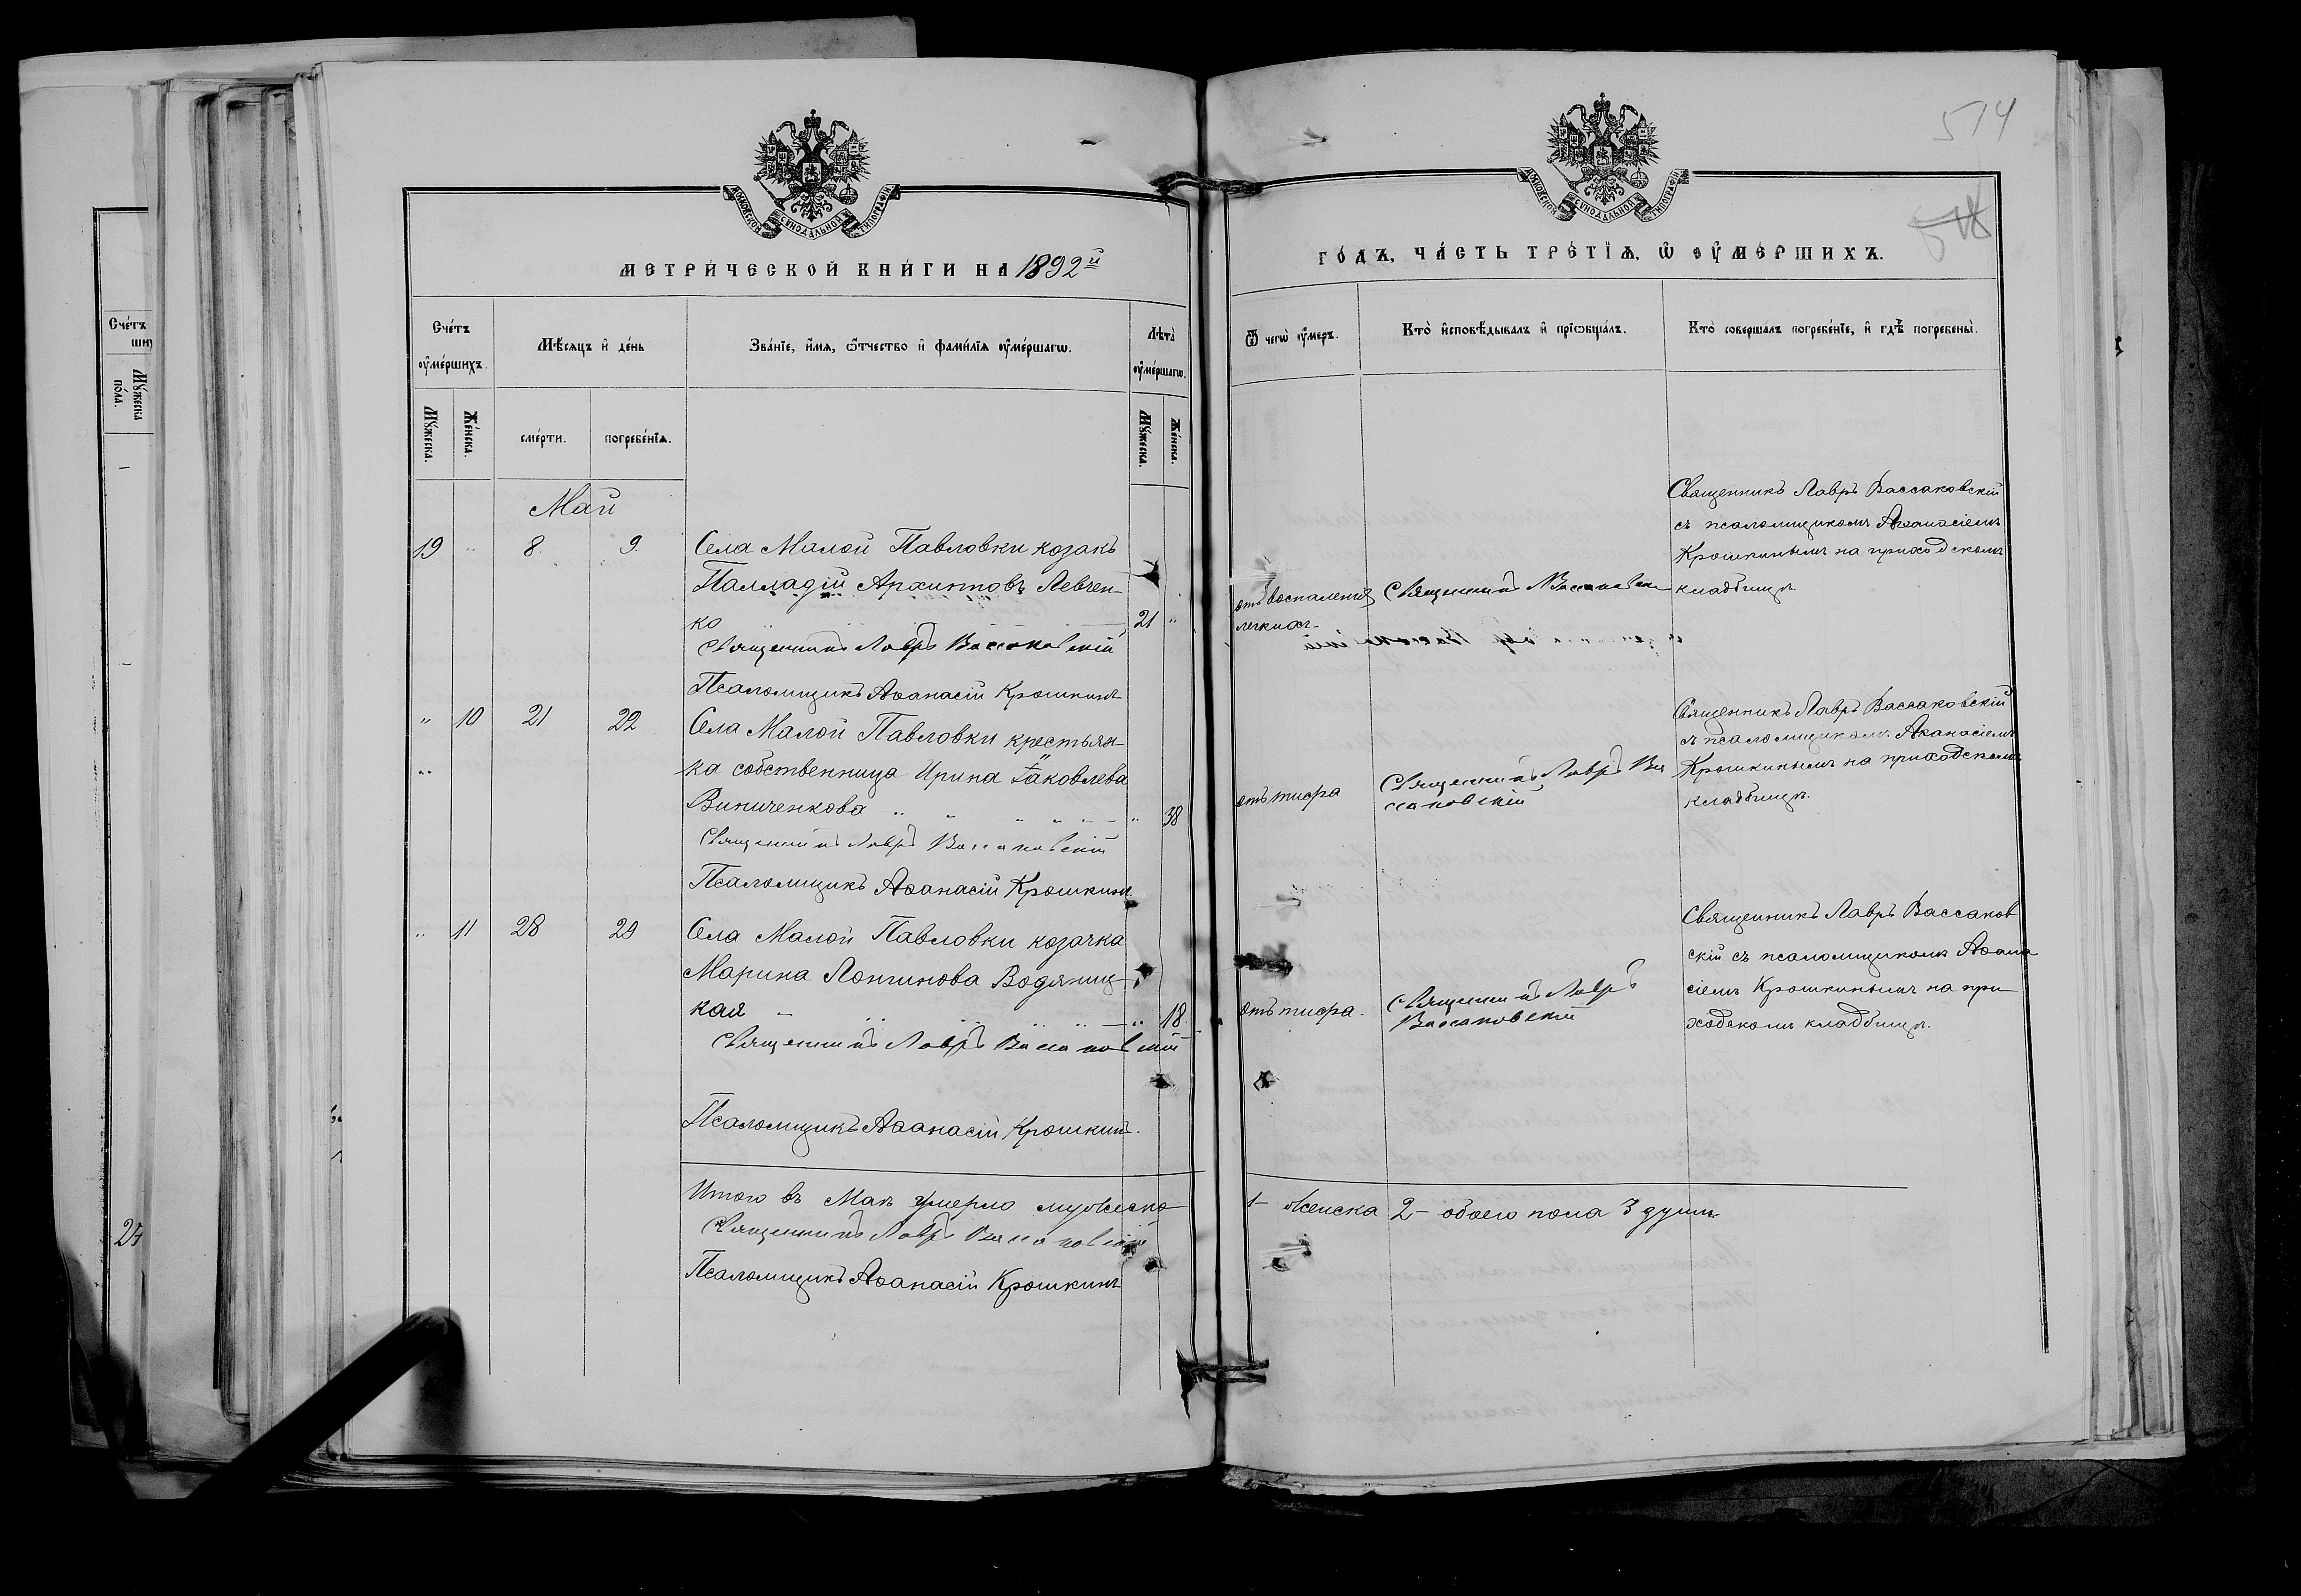 514
МЕТРИ́ЧЕСКОЙ КНИ́ГИ НА 1892й
ГО́ДЪ, ЧА́СТЬ ТРЕ́ТІѦ, Ѡ҆ ОУ҆МЕ́РШИХЪ.
МОСКОВСКОЙ СѴНОДАЛЬНОЙ ТИПОГРАФІИ
МОСКОВСКОЙ СѴНОДАЛЬНОЙ ТИПОГРАФІИ
Сче́тъ
оу҆ме́ршихъ.
Мѣ́сяцъ и҆ де́нь
Зва́нїе, и҆́мѧ, ѻ҆́тчество и҆ фами́лїѧ оу҆ме́ршагѡ.
Лѣ́та
оу҆ме́ршагѡ.
Ѿ чегѡ̀ оу҆́меръ.
Кто̀ и҆сповѣ́дывалъ и҆ прїѡбща́лъ.
Кто̀ соверша́лъ погребе́нїе, и҆ гдѣ̀ погребены̀.
Мꙋ́жеска.
Же́нска.
сме́рти.
погребе́нїѧ.
Мꙋ́жеска.
Же́нска.
Май
19 " 8. 9. Села Малой Павловки козакъ
Палладій Архиповъ Левчен-
ко 21 "
Священникъ Лавръ Вассаковскій
Псаломщикъ Аѳанасій Крошкинъ
отъ воспаленія
легкихъ
Священникъ Л Вассаковскі
Священникъ Лавръ Вассаковскій
съ псаломщикомъ Аѳанасіемъ
Крошкинымъ на приходскомъ
кладбищѣ.
" 10 21 22 Села Малой Павловки крестьян-
ка собственница Ирина Яковлева
Виниченкова " 38
Священникъ Лавръ Вассаковскій
Псаломщикъ Аѳанасій Крошкинъ.
отъ тифа
Священникъ Лавръ Ва
ссаковскій
Священникъ Лавръ Вассаковскій
съ псаломщикомъ Аѳанасіемъ
Крошкинымъ на приходскомъ
кладбищѣ.
" 11 28 29 Села Малой Павловки козачка
Марина Лонгинова Водяниц-
кая " 18.
Священникъ Лавръ Вассаковскій
Псаломщикъ Аѳанасій Крошкинъ.
отъ тифа.
Священникъ Лавръ
Вассаковскій
Священникъ Лавръ Вассаков
скій съ псаломщикомъ Аѳана
сіемъ Крошкинымъ на при-
ходскомъ кладбищѣ.
Итого въ Маѣ умерло мужеска
1- женска 2- обоего пола 3 души
Священникъ Лавръ Вассаковскій
Псаломщикъ Аѳанасій Крошкинъ
Сче́тъ
Мꙋ́жеска
по́ла.
24